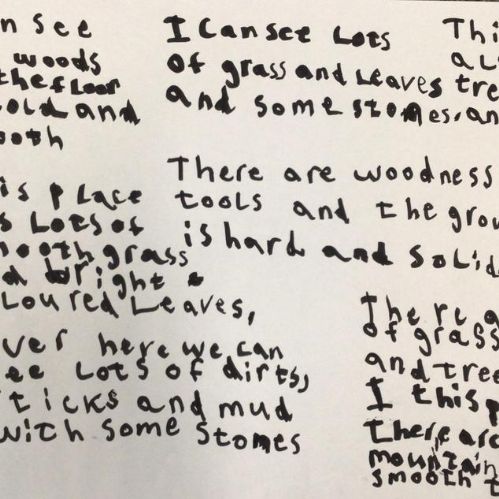 n see
woods
the floor
old and
ooth
I Can see Lots
of grass and Leaves
and some stomes.
Thi
aL
tre
an
There are woodness
tools and the grou
is hard and solid
is place
s Lots of
mooth grass
d bright
Loured Leaves,
ver here we can
ee Lots of dirts,
ticks and mud
with some stomes
There a
of grass
and tree
I this p
there are
mountain
smooth t